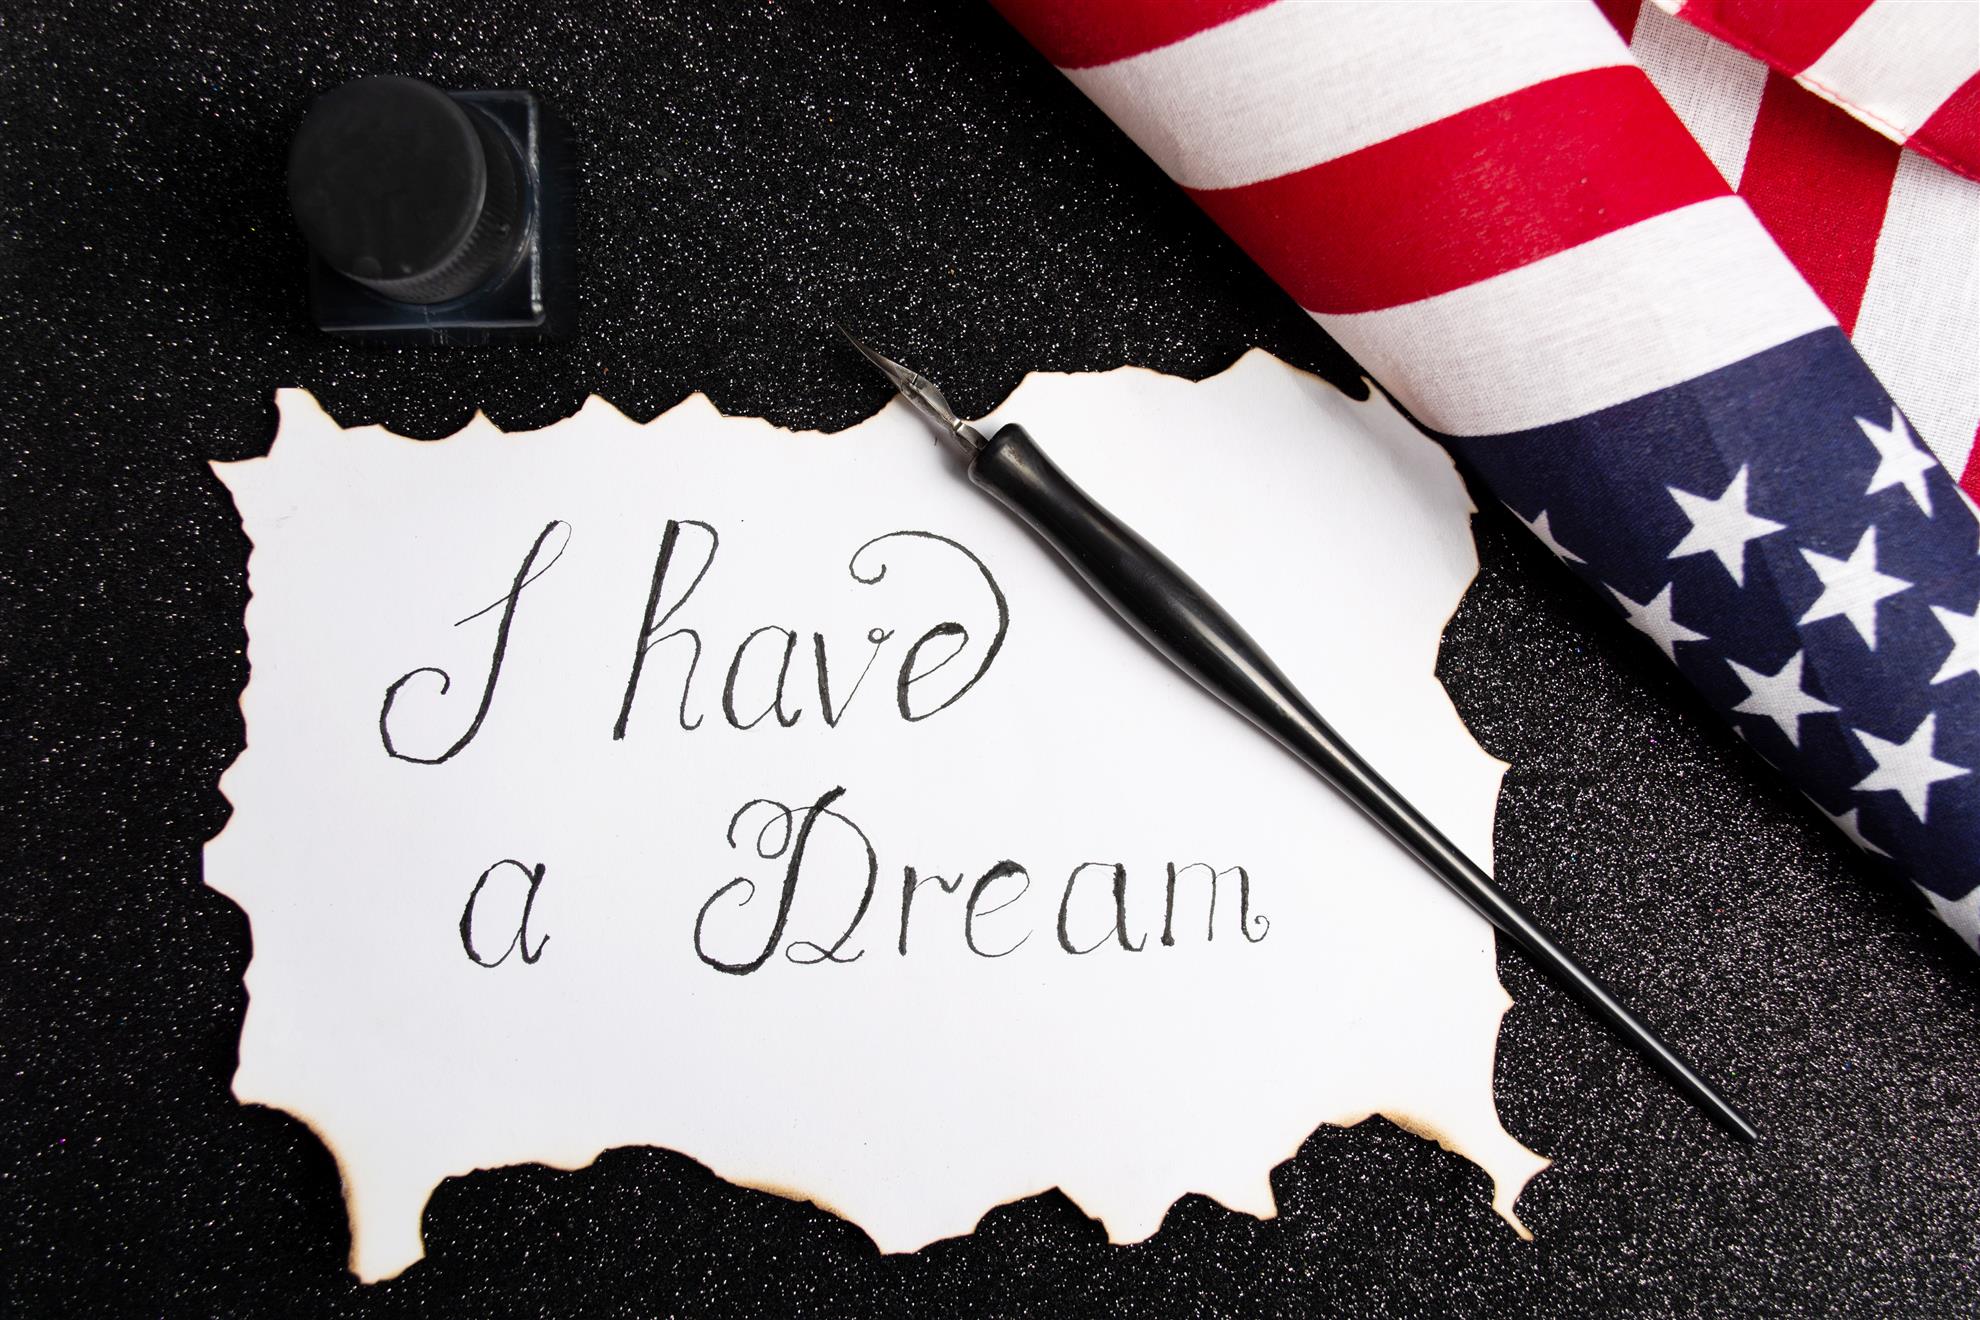 I have
a Dream